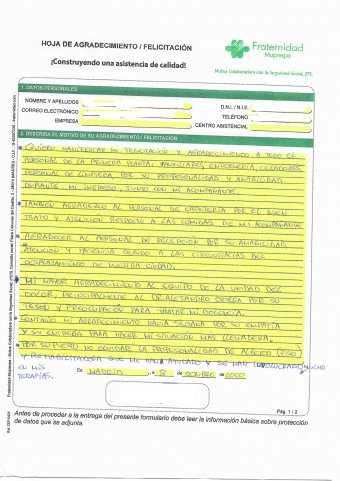 HOJA DE AGRADECIMIENTO / FELICITACIÓN
¡Construyendo una asistencia de calidad!
Fraternidad
Muprespa
Mutua Colaboradora con la Seguridad Social, 275.
1. DATOS PERSONALES
NOMBRE Y APELLIDOS
D.N.I. / N.I.E.
CORREO ELECTRÓNICO
TELÉFONO
EMPRESA
CENTRO ASISTENCIAL
2. DESCRIBA EL MOTIVO DE SU AGRADECIMIENTO / FELICITACIÓN
QUIERO MANIFESTAR MI FELICITACIÓN Y AGRADECIMIENTO A TODO EL
PERSONAL DE LA PRIMERA PLANTA, AUXILIARES, ENFERMERÍA, CELADORES,
PERSONAL DE LIMPIEZA POR SU PROFESIONALIDAD Y AMABILIDAD
DURANTE MI INGRESO, JUNTO CON MI ACOMPAÑANTE.
TAMBIÉN AGRADEZCO AL PERSONAL DE CAFETERÍA POR EL BUEN
TRATO Y ATENCIÓN RESPECTO A LAS COMIDAS DE MI ACOMPAÑANTE
AGRADECER AL PERSONAL DE RECEPCIÓN POR SU AMABILIDAD,
ATENCIÓN Y PACIENCIA DEBIDO A LAS CIRCUNSTACIAS DEL
DESPLAZAMIENTO DE NUESTRA CIUDAD.
MI MAYOR AGRADECIMIENTO AL EQUIPO DE LA UNIDAD DEL
DOLOR, PRINCIPALMENTE AL DR. ALEJANDRO ORTEGA POR SU
TESÓN Y PREOCUPACIÓN PARA TRATAR MI DOLENCIA.
CONTINÚO MI AGRADECIMIENTO HACIA SUSANA POR SU EMPATÍA
Y SU ENTREGA PARA HACER MI SITUACIÓN MÁS LLEVADERA.
POR SUPUESTO NO OLVIDAR LA PROFESIONALIDAD DE ALBERTO (FISIO)
Y REHABILITADORA QUE ME HAN AYUDADO Y SE HAN INVOLUCRADO MUCHO
EN MIS
TERAPIAS.
En MADRID, a 8 de OCTUBRE de 2020
Pág. 1 / 2
Antes de proceder a la entrega del presente formulario debe leer la información básica sobre protección
de datos que se adjunta.